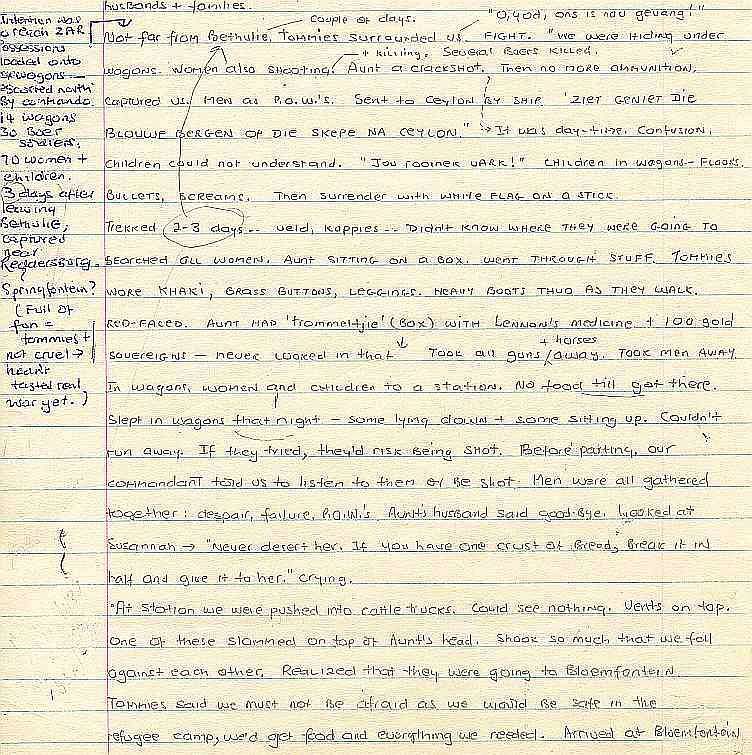 husbands + families.
couple of days.
"O, God, ons is nou gevang!"
Not far from Bethulie, Tommies surrounded us. FIGHT. "We were hiding under
+ killing. Several Boers killed.
wagons. Women also shooting. Aunt a crackshot. Then no more ammunition.
Captured us. Men as P.O.W.'s. Sent to Ceylon by ship. 'ZIET GENIET DIE
BLOUWE BERGEN OP DIE SKEPE NA CEYLON." It was day-time. Confusion.
Children could not understand. "Jou rooinek vark!" Children in wagons - Floors.
Bullets, screams. Then surrender with white flag on a stick.
Trekked 2-3 days... veld, koppies... Didn't know where they were going to
Searched all women. Aunt sitting on a box. Went through stuff. Tommies
wore khaki, brass buttons, leggings. Heavy boots thud as they walk.
Red-faced. Aunt had 'trommeltjie' (box) with Lennon's medicine + 100 gold
+ horses
sovereigns - never looked in that. Took all guns away. Took men away
In wagons, women and children to a station. No food till got there.
Slept in wagons that night - some lying down + some sitting up. Couldn't
run away. If they tried, they'd risk being shot. Before parting, our
commandant told us to listen to them or be shot. Men were all gathered
together: despair, failure, P.O.W.'s. Aunt's husband said good-bye. Looked at
Susannah → "Never desert her. If you have one crust of bread, break it in
half and give it to her." Crying.
"At station we were pushed into cattle trucks. Could see nothing. Vents on top.
One of these slammed on top of Aunt's head. Shook so much that we fell
against each other. Realized that they were going to Bloemfontein.
Tommies said we must not be afraid as we would be safe in the
refugee camp, we'd get food and everything we needed. Arrived at Bloemfontein
Intention was
to reach ZAR
possessions
loaded onto
wagons -
escorted north
by commando.
14 wagons
30 Boer
soldiers.
70 women +
children.
3 days after
leaving
Bethulie,
captured
near
Reddersburg.
Springfontein?
(Full of
fun =
tommies +
not cruel →
hadn't
tasted real
war yet.)